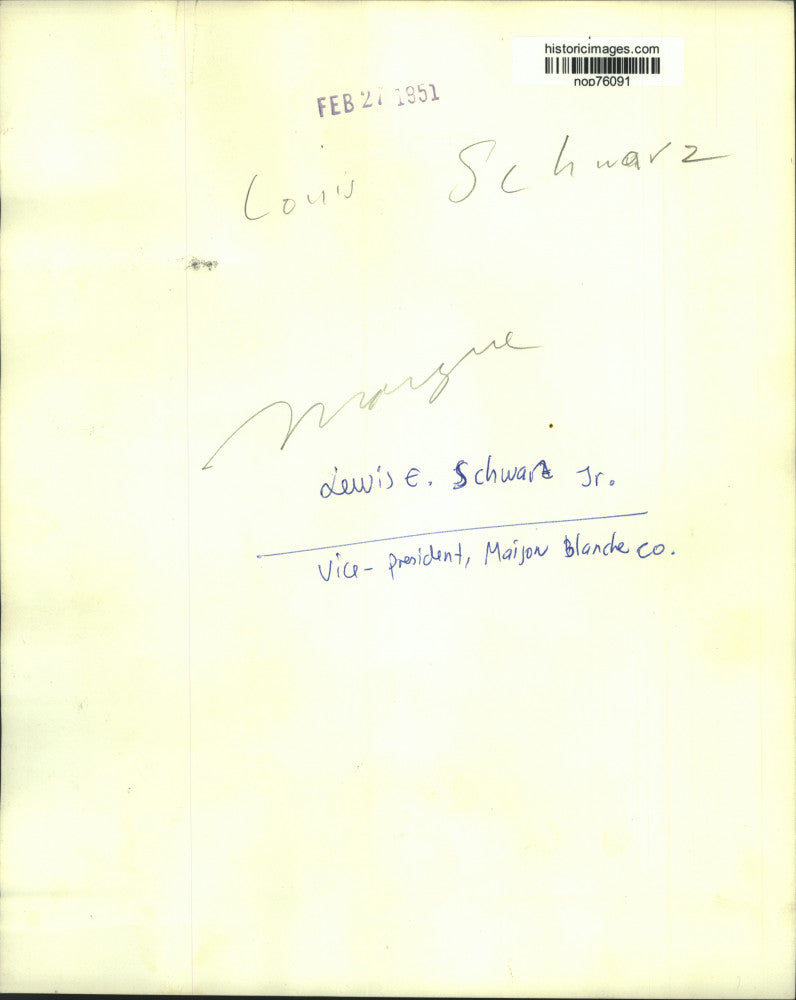 historicimages.com
nop76091
FEB 27 1951
Louis Schwarz
Morgue
Lewis E. Schwartz Jr.
Vice-president, Maison Blanche co.